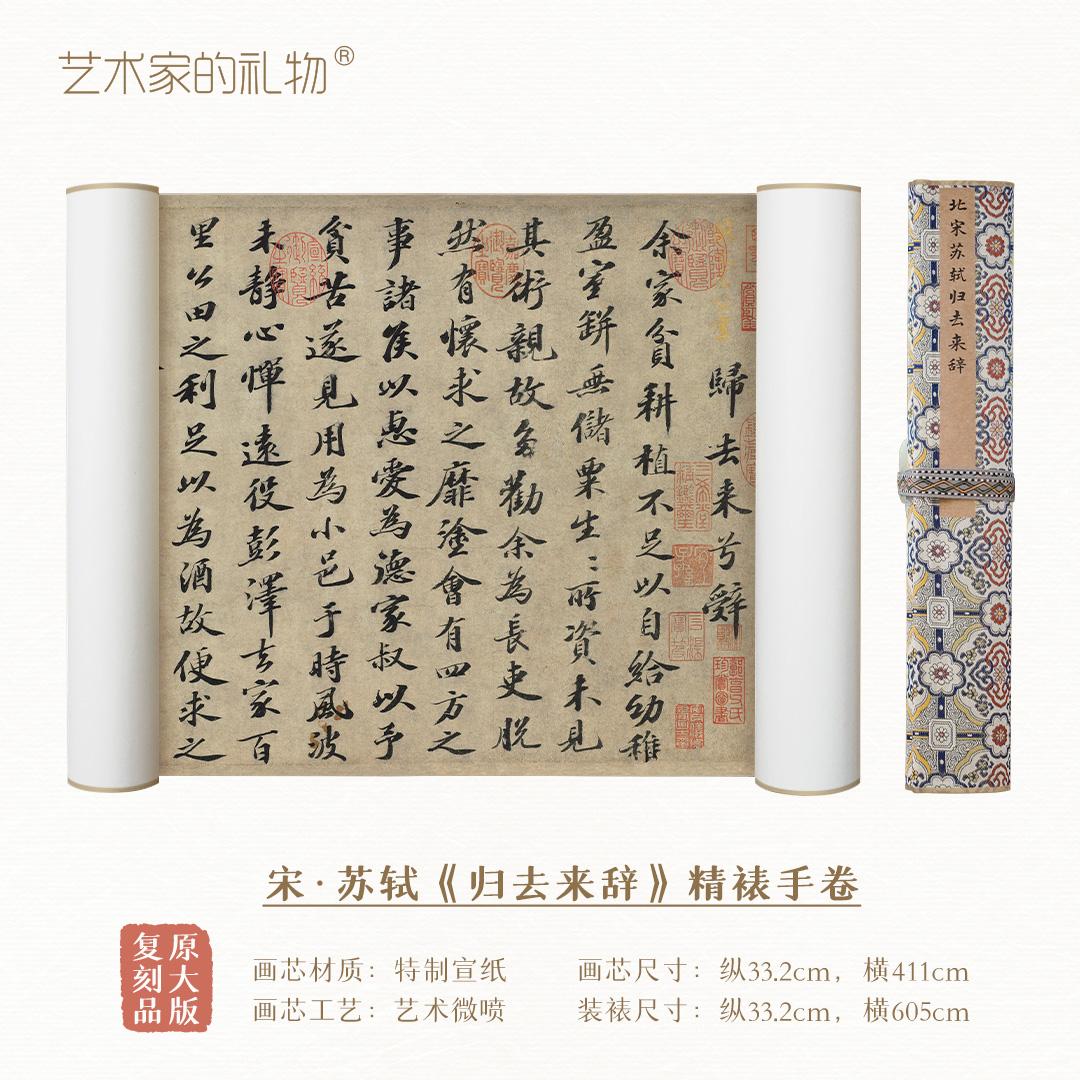 艺术家的礼物®
歸去来兮辤
余家貧耕植不足以自給幼稚
盈室缾無儲粟生〻所資未見
其術親故多勸余為長吏脱
然有懷求之靡塗會有四方之
事諸侯以惠愛為德家叔以予
貧苦遂見用為小邑于時風波
未静心惮遠役彭澤去家百
里公田之利足以為酒故便求之
北宋苏轼归去来辞
宋·苏轼《归去来辞》精裱手卷
原大版
复刻品
画芯材质：特制宣纸
画芯工艺：艺术微喷
画芯尺寸：纵33.2cm，横411cm
装裱尺寸：纵33.2cm，横605cm